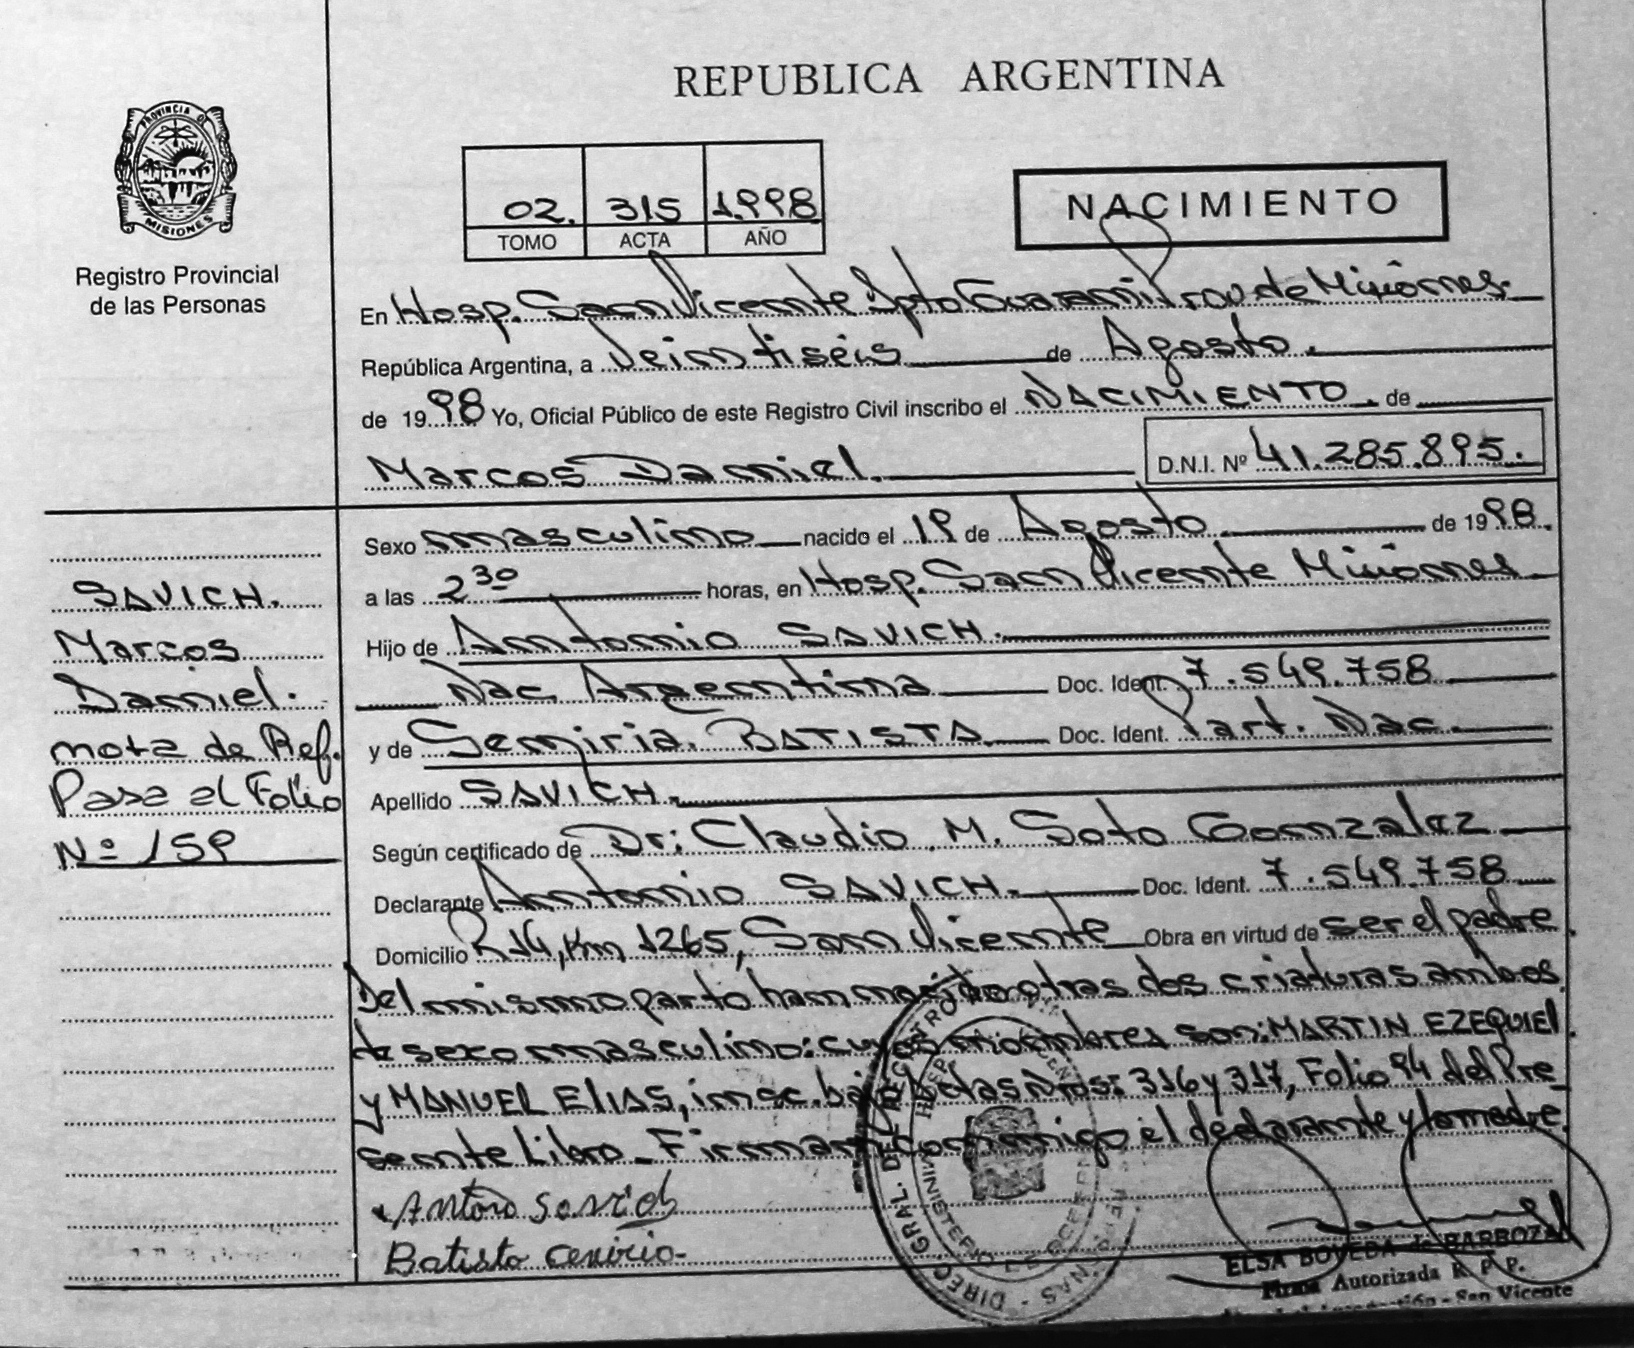 REPUBLICA ARGENTINA
PROVINCIA DE
MISIONES
Registro Provincial
de las Personas
02. 315 1.998
TOMO ACTA AÑO
NACIMIENTO
En Hosp. San Vicente Dpto Guaraní Prov de Misiones.
República Argentina, a Veintiséis de Agosto.
de 1998 Yo, Oficial Público de este Registro Civil inscribo el NACIMIENTO. de
Marcos Daniel. D.N.I. Nº 41.285.895.
Sexo masculino nacido el 19 de Agosto de 1998.
a las 2 30 horas, en Hosp. San Vicente Misiones
Hijo de Antonio SAVICH.
Nac. Argentina Doc. Ident. 7.549.758
y de Semiria. BATISTA Doc. Ident. Part. Nac.
Apellido SAVICH.
Según certificado de Dr: Claudio M. Soto Gonzalez
Declarante Antonio SAVICH. Doc. Ident. 7.549.758
Domicilio R.14, Km 1265, San Vicente Obra en virtud de ser el padre.
Del mismo parto han nacido otras dos criaturas ambos
de sexo masculino: cuyos nombres son: MARTIN EZEQUIEL
y MANUEL ELIAS, insc. bajo Actas Nros: 316 y 317, Folio 94 del Pre_
sente Libro_ Firman conmigo el declarante y la madre.
SAVICH.
Marcos
Daniel.
nota de Ref.
Pasa al Folio
Nº 159
Antonio Savich
Batista
DIREC. GRAL. DEL REGISTRO
MINISTERIO
ELSA BOVEDA de BARBOZA
Firma Autorizada R. P. P.
San Vicente